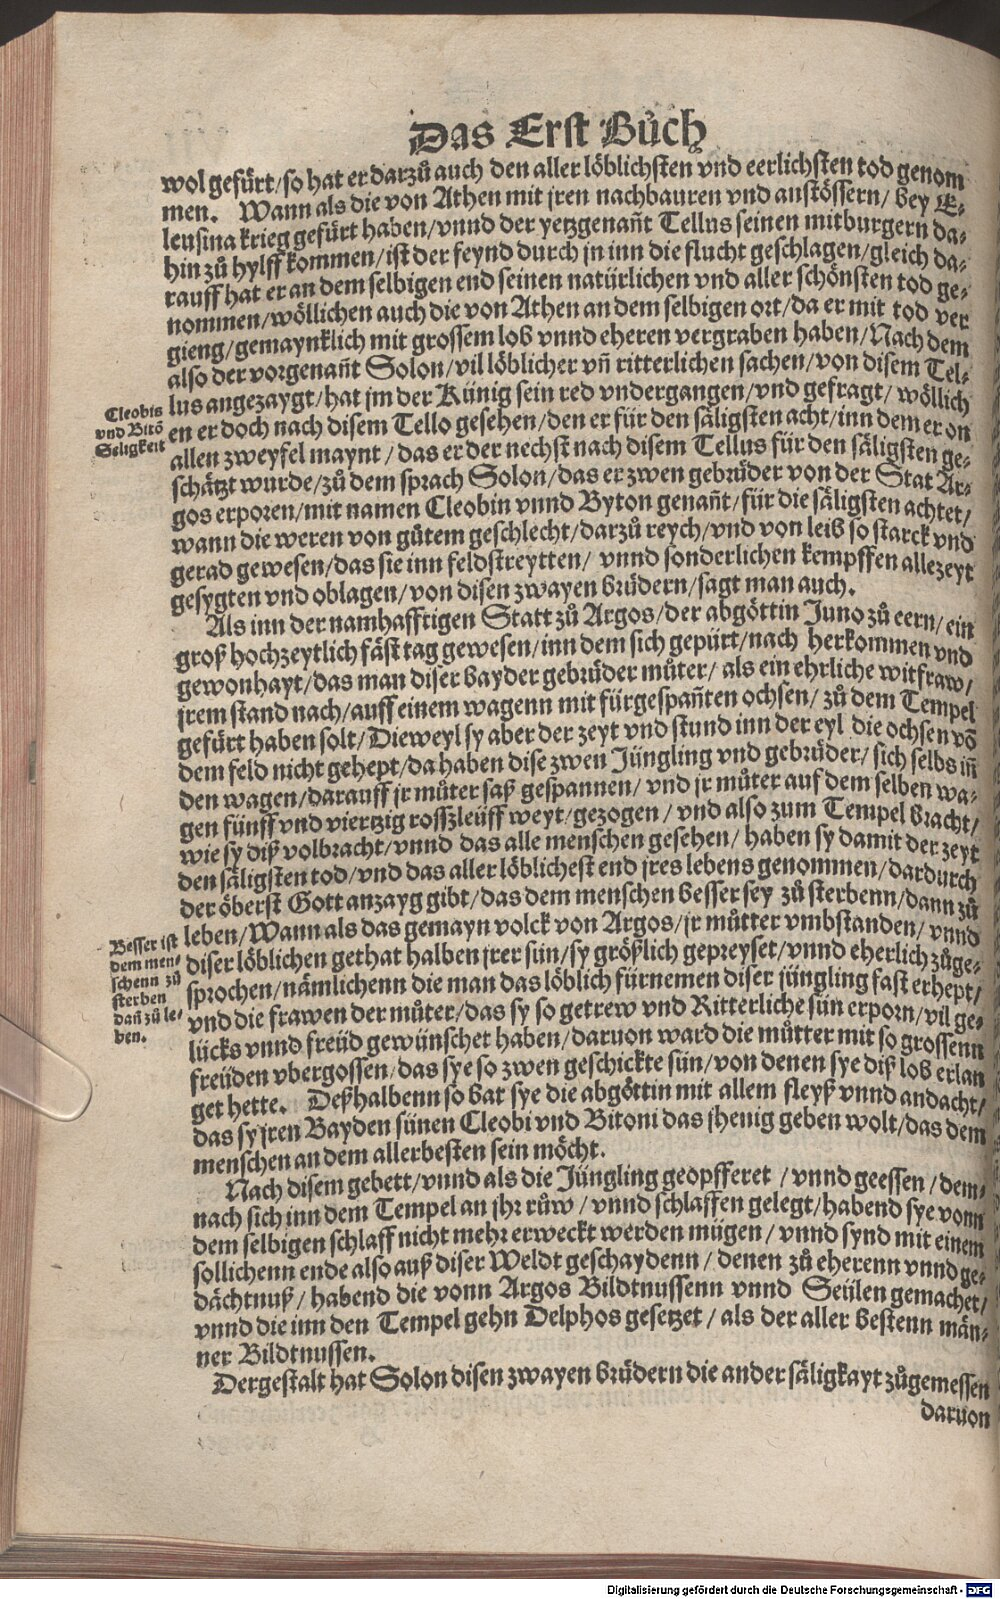 Das Erst Bůch
wol gefürt/so hat er darzů auch den aller löblichsten vnd eerlichsten tod genom
men. Wann als die von Athen mit jren nachbauren vnd anstössern/ bey E-
leusina krieg gefürt haben/vnnd der yetzgenañt Tellus seinen mitburgern da-
hin zů hylff kommen/ist der feynd durch jn inn die flucht geschlagen/gleich da-
rauff hat er an dem selbigen end seinen natürlichen vnd aller schönsten tod ge-
nommen/wöllichen auch die von Athen an dem selbigen ort/da er mit tod ver
gieng/gemaynklich mit grossem lob vnnd eheren vergraben haben/Nach dem
also der vorgenañt Solon/vil löblicher vñ ritterlichen sachen/von disem Tel-
lus angezaygt/hat jm der Künig sein red vndergangen/vnd gefragt/ wöllich
en er doch nach disem Tello gesehen/den er für den säligsten acht/inn dem er on
allen zweyfel maynt/ das er der nechst nach disem Tellus für den säligsten ge-
schätzt wurde/zů dem sprach Solon/das er zwen gebrüder von der Stat Ar-
gos erporen/mit namen Cleobin vnnd Byton genañt/für die säligsten achtet/
wann die weren von gůtem geschlecht/darzů reych/vnd von leib so starck vnd
gerad gewesen/das sie inn feldstreytten/ vnnd sonderlichen kempffen allezeyt
gesygten vnd oblagen/von disen zwayen brüdern/sagt man auch.
Als inn der namhafftigen Statt zů Argos/der abgöttin Juno zů eern/ein
groß hochzeytlich fäst tag gewesen/inn dem sich gepürt/nach herkommen vnd
gewonhayt/das man diser bayder gebrüder můter/ als ein ehrliche witfraw/
jrem stand nach/auff einem wagenn mit fürgespañten ochsen/ zů dem Tempel
gefürt haben solt/Dieweyl sy aber der zeyt vnd stund inn der eyl die ochsen võ
dem feld nicht gehept/da haben dise zwen Jüngling vnd gebrüder/ sich selbs iñ
den wagen/darauff jr můter saß gespannen/ vnd jr můter auf dem selben wa-
gen fünff vnd viertzig rosszleüff weyt/gezogen/ vnd also zum Tempel bracht/
wie sy diß volbracht/vnnd das alle menschen gesehen/ haben sy damit der zeyt
den säligsten tod/vnd das aller löblichest end jres lebens genommen/dardurch
der öberst Gott anzayg gibt/das dem menschen besser sey zů sterbenn/dann zů
leben/Wann als das gemayn volck von Argos/jr můtter vmbstanden/ vnnd
diser löblichen gethat halben jrer sün/sy größlich gepreyset/vnnd eherlich zůge-
sprochen/nämlichenn die man das löblich fürnemen diser jüngling fast erhept/
vnd die frawen der můter/das sy so getrew vnd Ritterliche sün erporn/vil ge-
lücks vnnd freüd gewünschet haben/daruon ward die můtter mit so grossenn
freüden vbergossen/das sye so zwen geschickte sün/von denen sye diß lob erlan
get hette. Deßhalbenn so bat sye die abgöttin mit allem fleyß vnnd andacht/
das sy jren Bayden sünen Cleobi vnd Bitoni das jhenig geben wolt/das dem
menschen an dem allerbesten sein möcht.
Nach disem gebett/vnnd als die Jüngling geopfferet/vnnd geessen/dem-
nach sich inn dem Tempel an jhr růw/ vnnd schlaffen gelegt/habend sye vonn
dem selbigen schlaff nicht mehr erweckt werden mügen/ vnnd synd mit einem
sollichenn ende also auß diser Weldt geschaydenn/ denen zů eherenn vnnd ge-
dächtnuß/ habend die vonn Argos Bildtnussenn vnnd Seülen gemachet/
vnnd die inn den Tempel gehn Delphos gesetzet/ als der aller bestenn män-
ner Bildtnussen.
Dergestalt hat Solon disen zwayen brüdern die ander säligkayt zůgemessen
daruon
Cleobis
vnd Bitõ
Seligkeit
Besser ist
dem men-
schenn zů
sterben
dañ zů le-
ben.
Digitalisierung gefördert durch die Deutsche Forschungsgemeinschaft - DFG